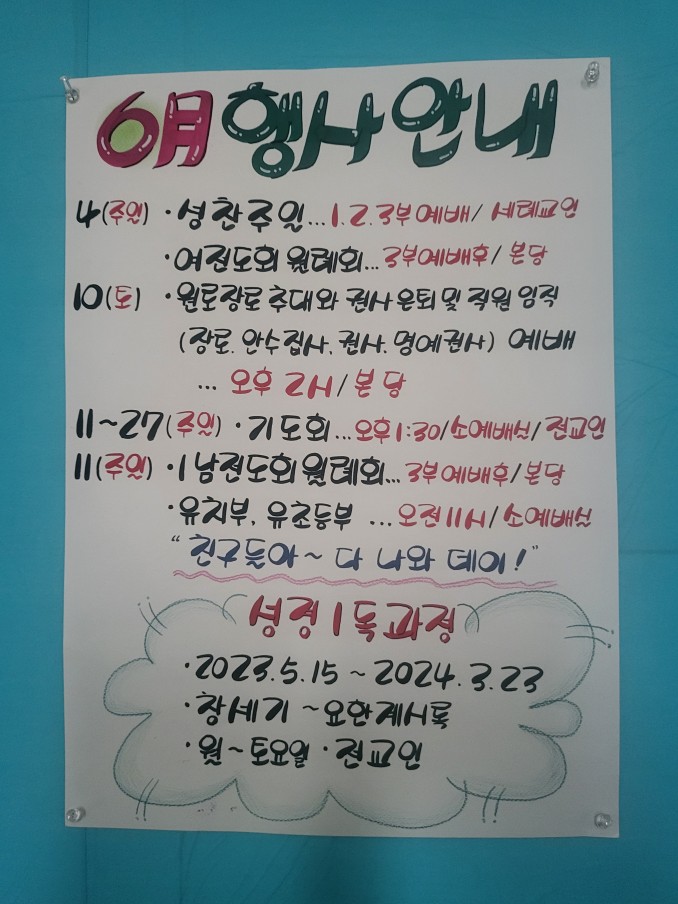 6月 행사 안내
4(주일) ·성찬주일...1.2.3부예배/ 세례교인
·여전도회 월례회...3부예배후/ 본당
10(토) ·원로장로 추대와 권사은퇴 및 직원 임직
(장로.안수집사.권사.명예권사) 예배
... 오후 2시/본당
11~27(주일) ·기도회...오후1:30/소예배실/전교인
11(주일) ·1남전도회월례회...3부예배후/본당
·유치부, 유초등부 ...오전11시/소예배실
"친구들아~ 다 나와 데이!"
성경1독과정
·2023.5.15 ~ 2024.3.23
·창세기 ~요한계시록
·월~토요일 ·전교인